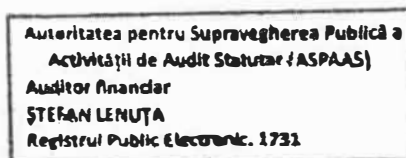 Autoritatea pentru Supravegherea Publică a
Activităţii de Audit Statutar (ASPAAS)
Auditor financiar
ŞTEFAN LENUŢA
Registrul Public Electronic. 1731